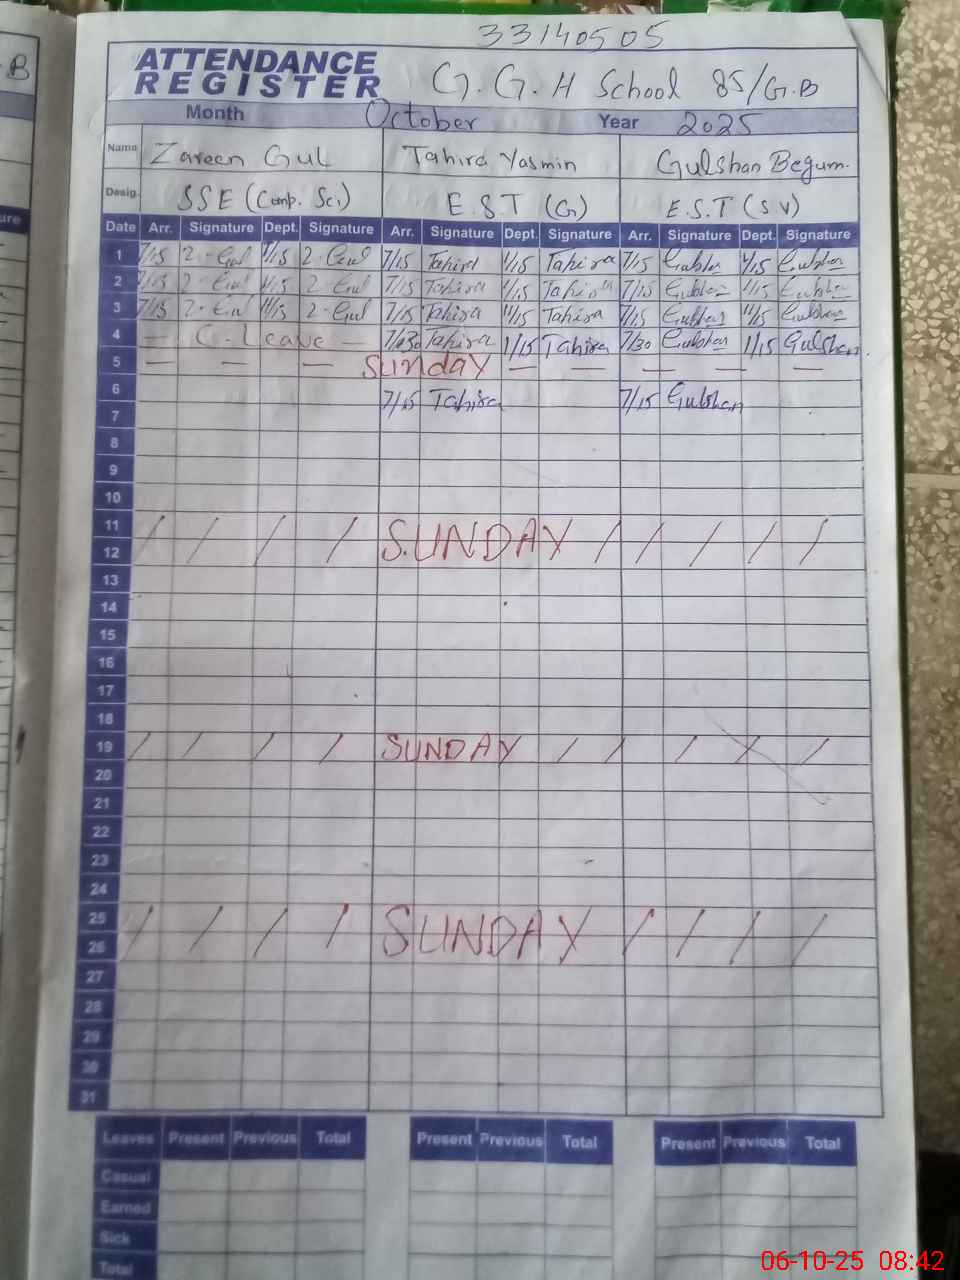 33140505
ATTENDANCE
REGISTER
G.G.H School 85/G.B
Month October Year 2025
Name Zareen Gul Tahira Yasmin Gulshan Begum.
Desig. SSE (Comp. Sci) E.S.T (G) E.S.T (S V)
Date Arr. Signature Dept. Signature Arr. Signature Dept. Signature Arr. Signature Dept. Signature
1 7/15 Z-Gul 1/15 Z-Gul 7/15 Tahira 1/15 Tahira 7/15 Gulshan 1/15 Gulshan
2 7/15 Z-Gul 1/15 Z-Gul 7/15 Tahira 1/15 Tahira 7/15 Gulshan 1/15 Gulshan
3 7/15 Z-Gul 11/15 Z-Gul 7/15 Tahira 11/15 Tahira 7/15 Gulshan 11/15 Gulshan
4 — C-Leave — 7/30 Tahira 1/15 Tahira 7/30 Gulshan 1/15 Gulshan
5 — — — Sunday — — — — —
6 7/15 Tahira 7/15 Gulshan
7
8
9
10
11
12 / / / / SUNDAY / / / / /
13
14
15
16
17
18
19 / / / / SUNDAY / / / / /
20
21
22
23
24
25
26 / / / / SUNDAY / / / /
27
28
29
30
31
Leaves Present Previous Total Present Previous Total Present Previous Total
Casual
Earned
Sick
Total
06-10-25 08:42
B
ure